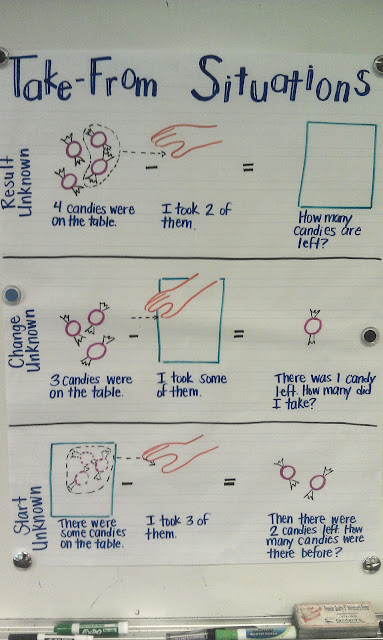 Take-From Situations
Result
Unknown
-
=
4 candies were
on the table.
I took 2 of
them.
How many
candies are
left?
Change
Unknown
-
=
3 candies were
on the table.
I took some
of them.
There was 1 candy
left. How many did
I take?
Start
Unknown
-
=
There were
some candies
on the table.
I took 3 of
them.
Then there were
2 candies left. How
many candies were
there before?